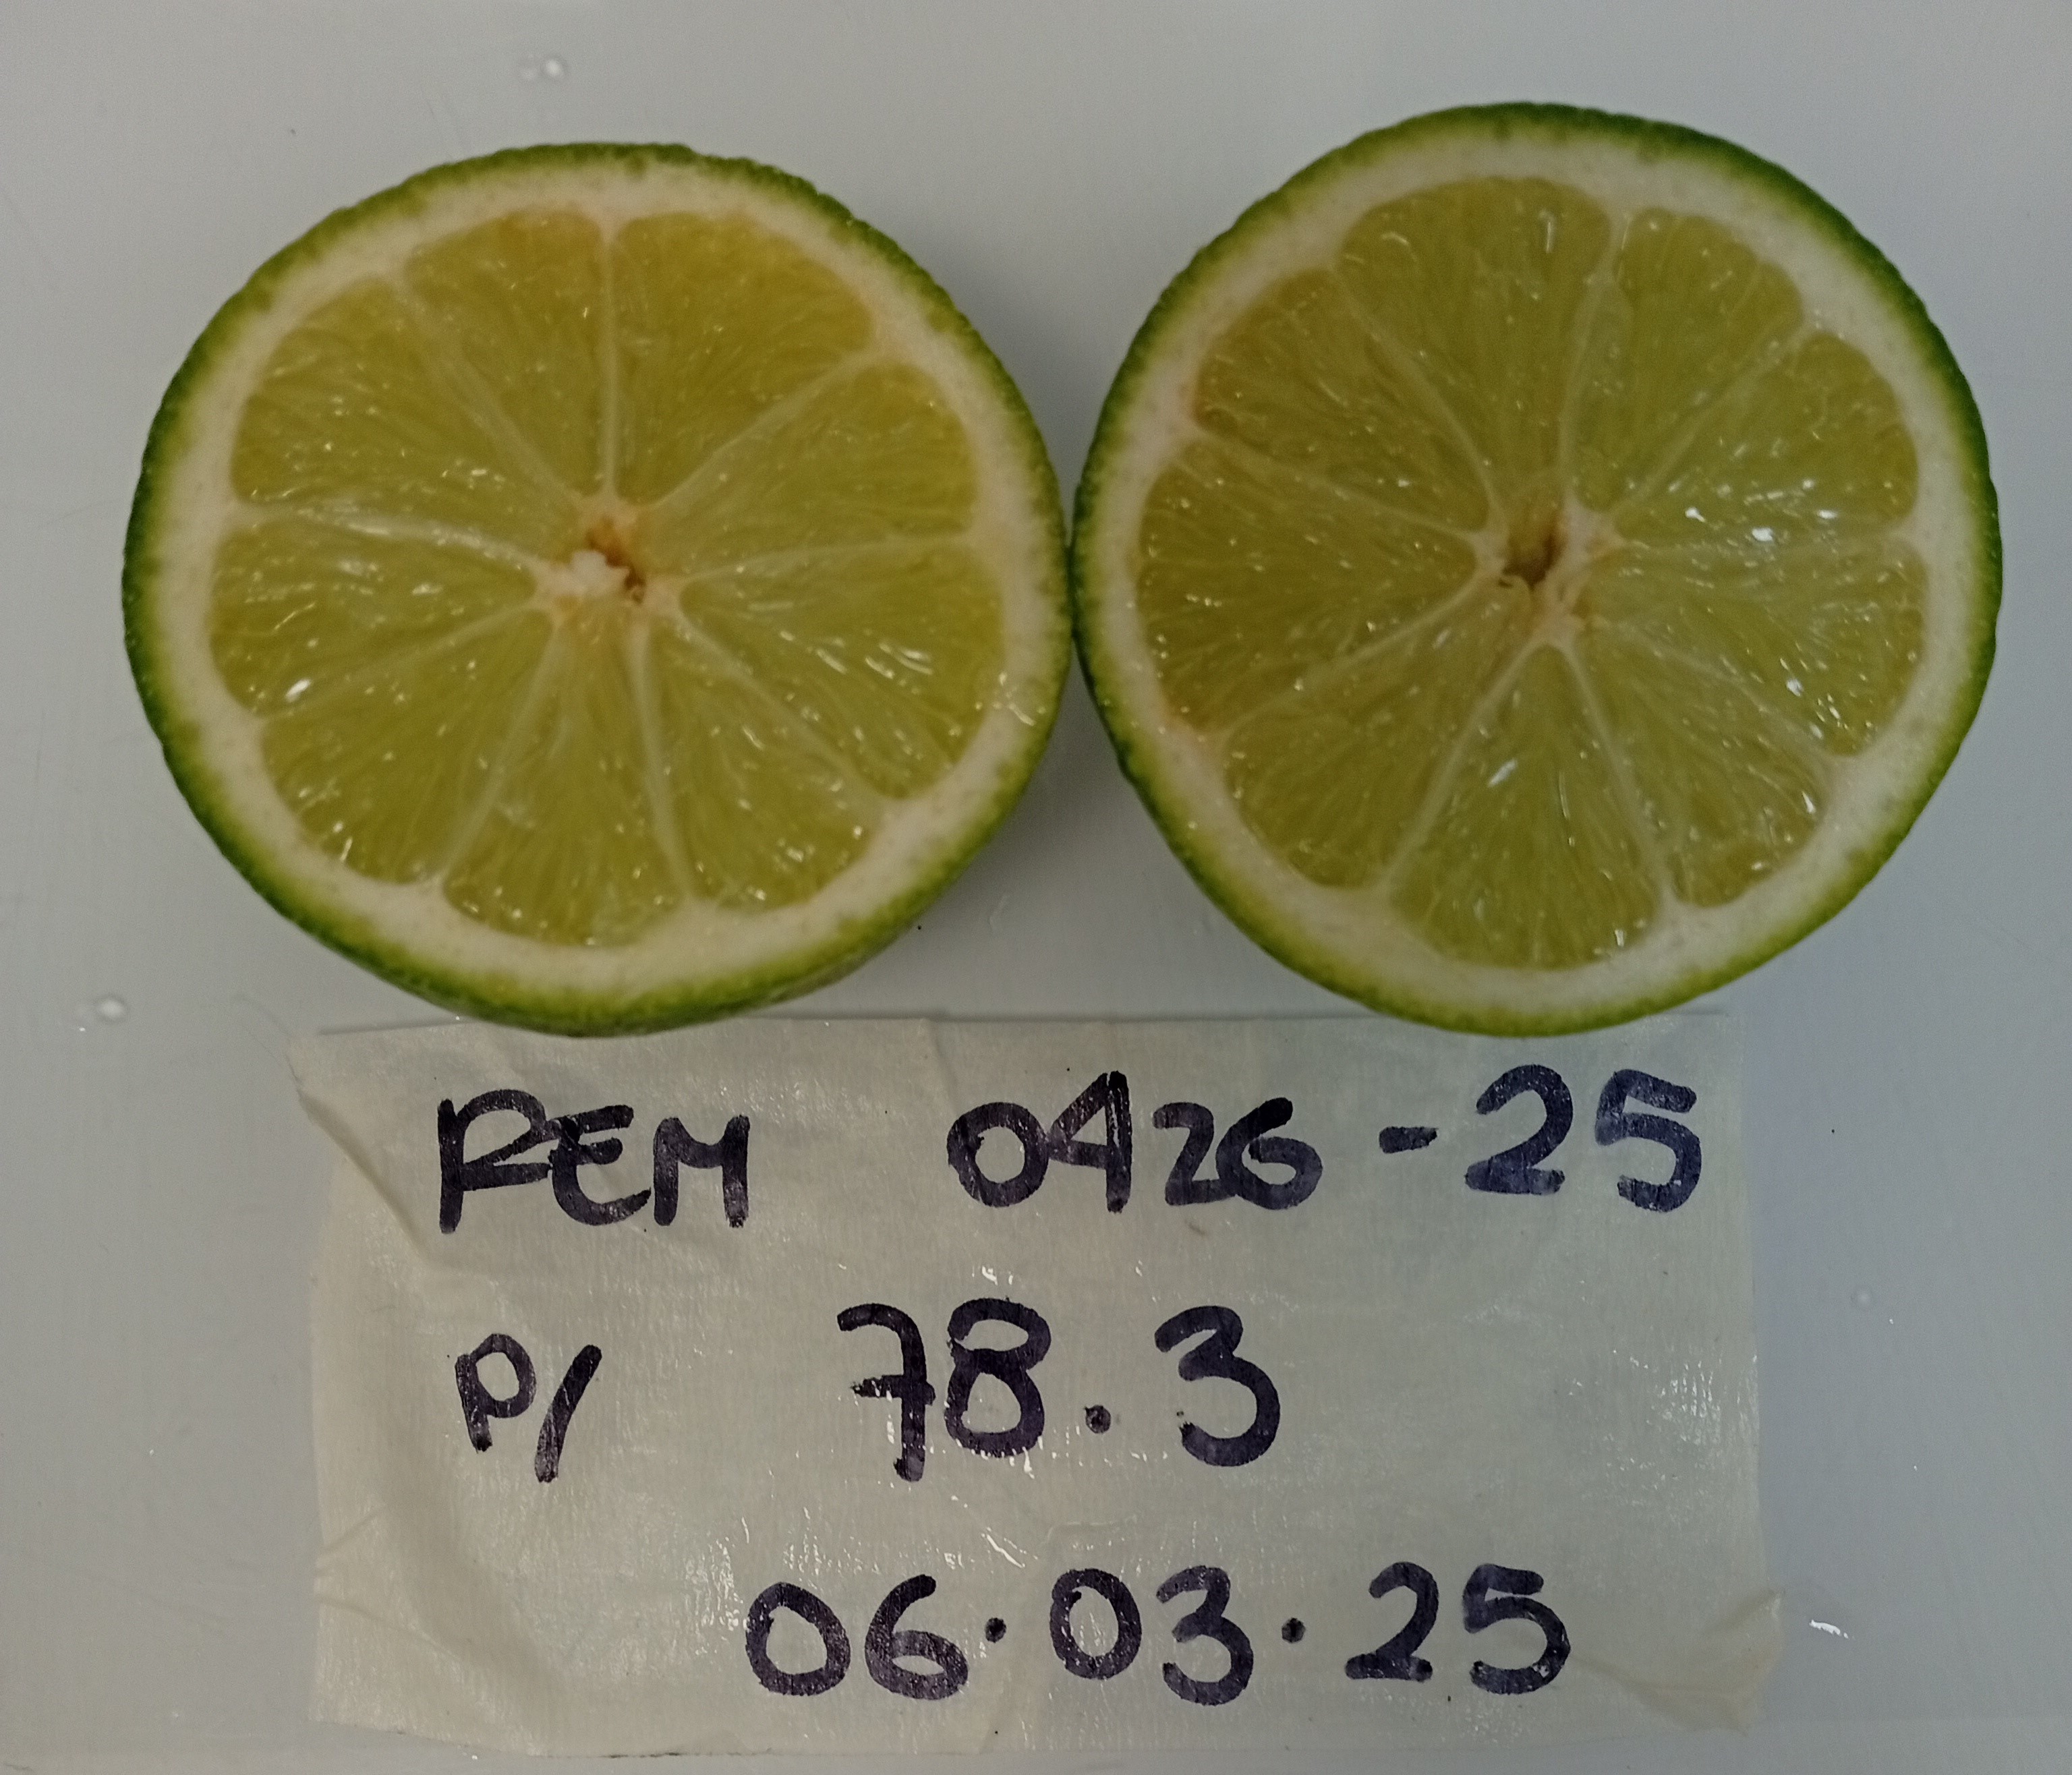 REM 0426-25
P/ 78.3
06.03.25